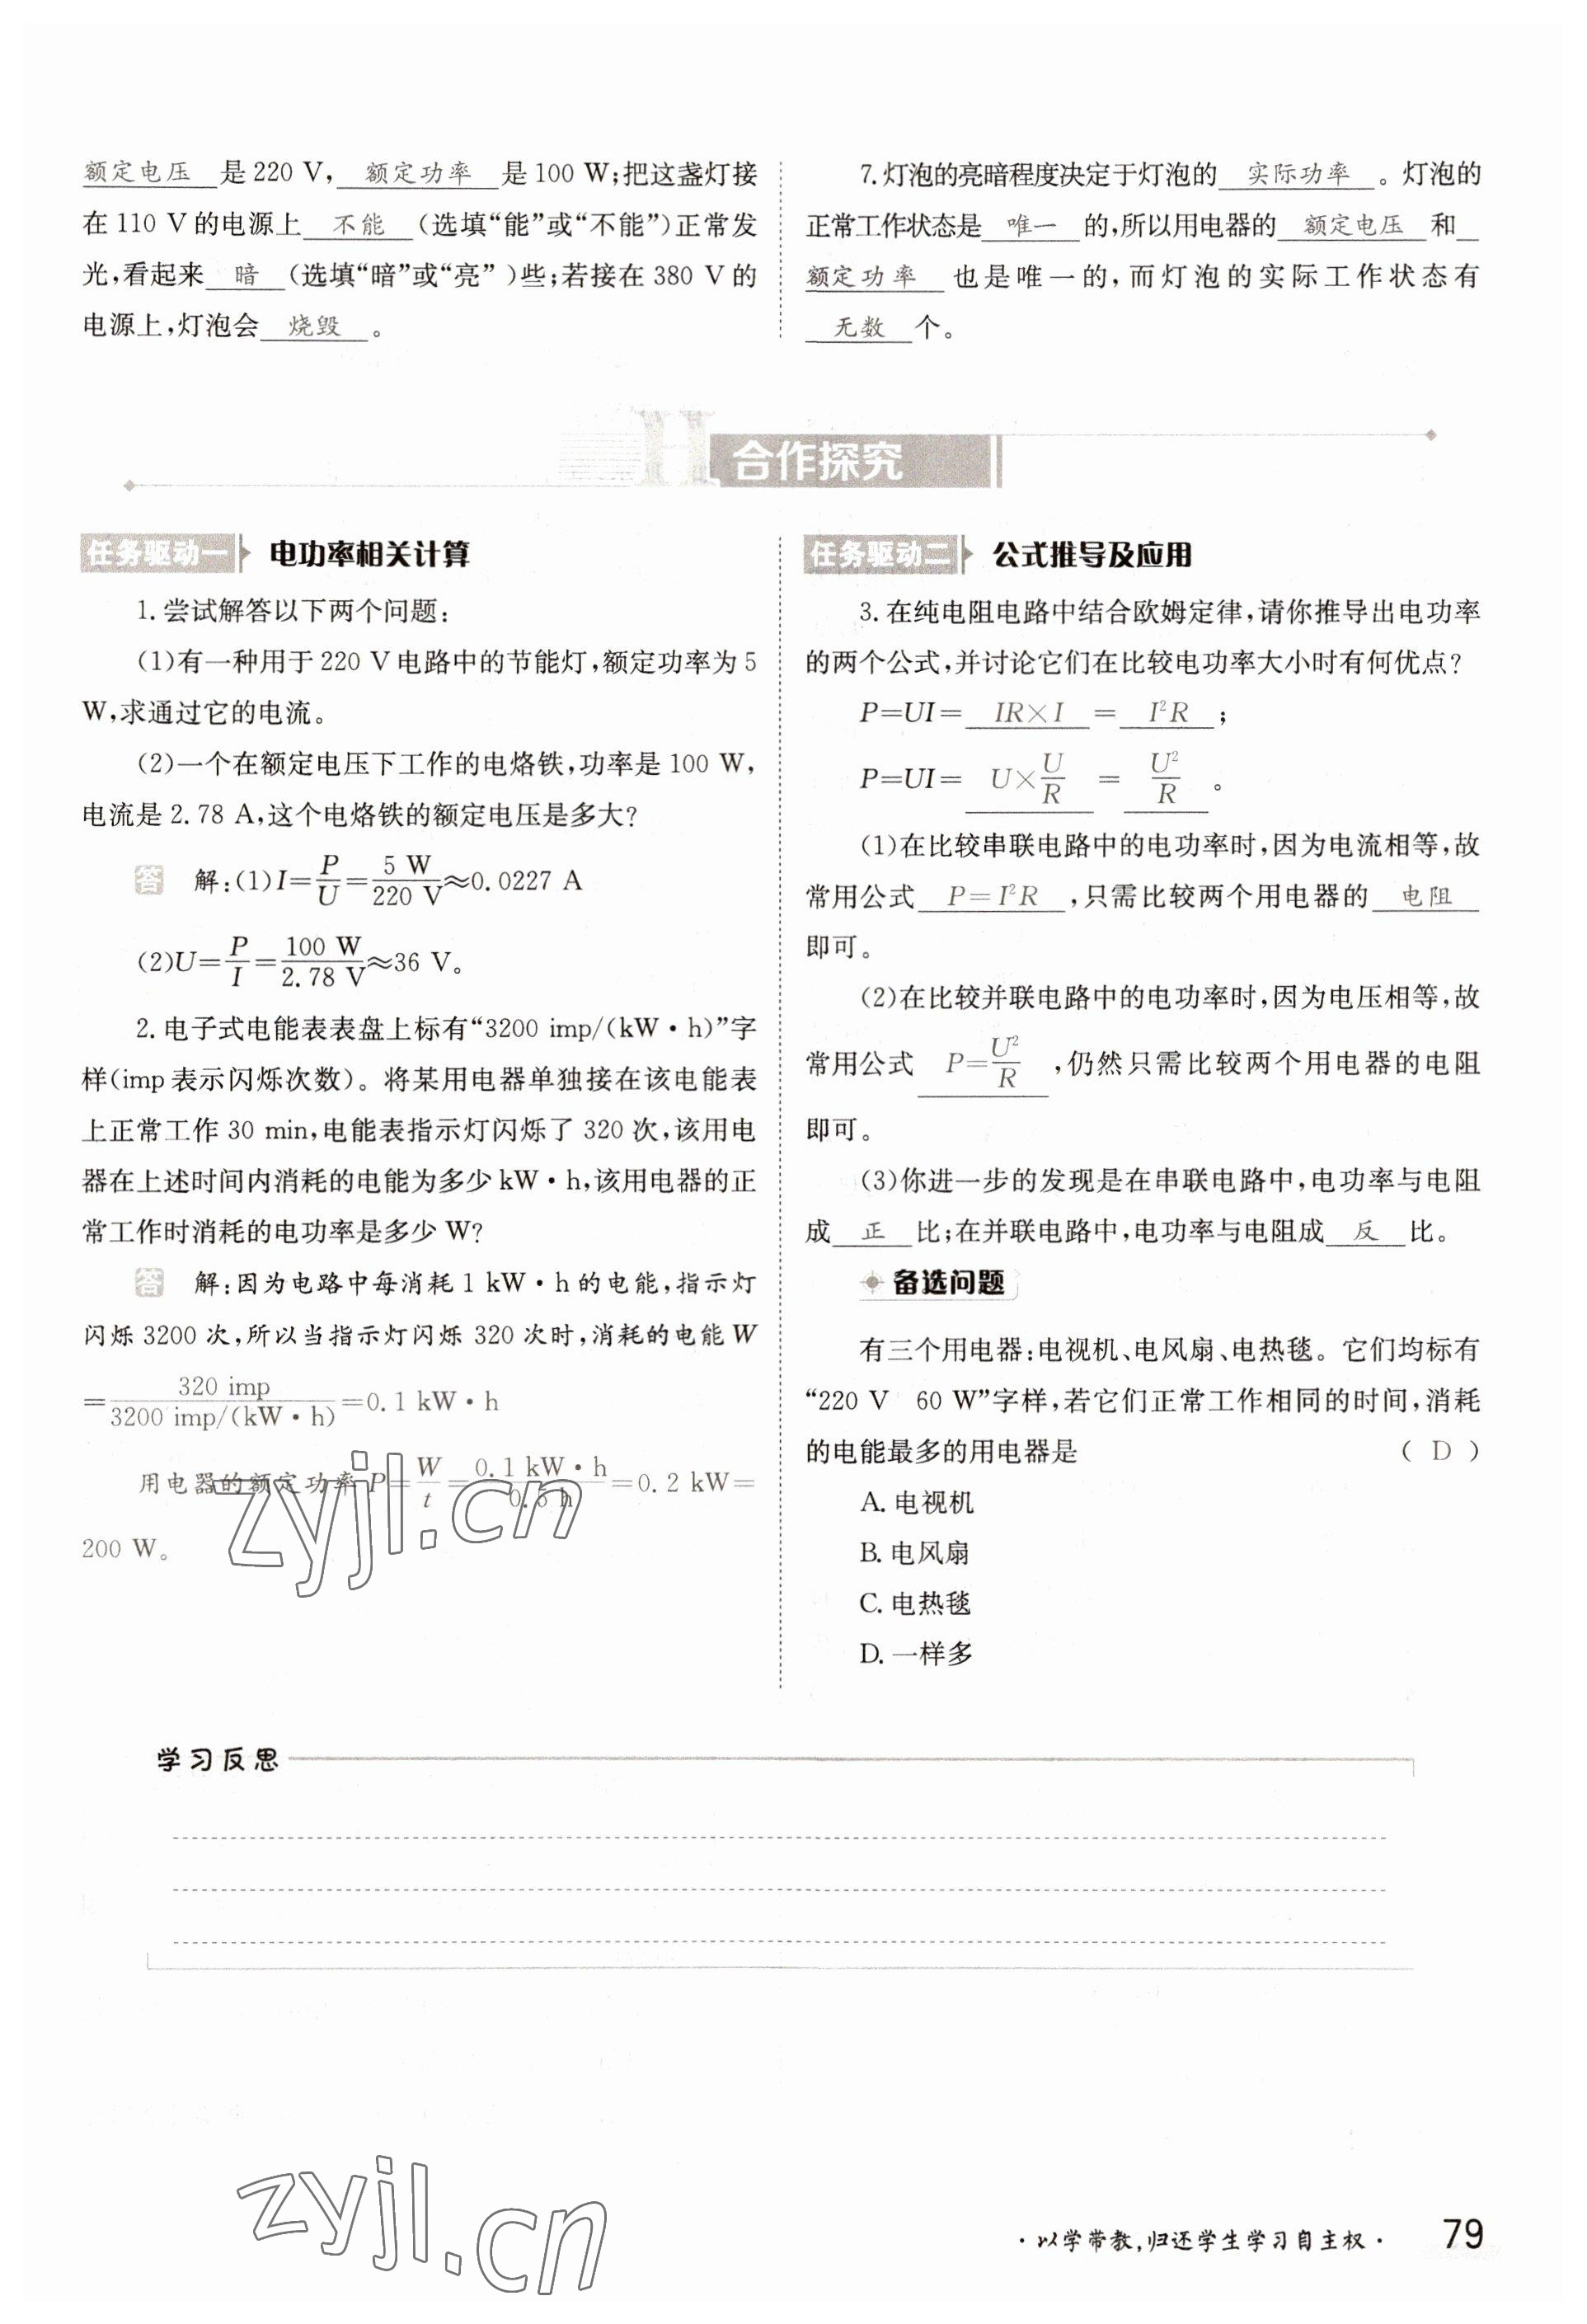 额定电压 是 220 V, 额定功率 是 100 W;把这盏灯接
在 110 V 的电源上 不能 (选填“能”或“不能”)正常发
光,看起来 暗 (选填“暗”或“亮”)些;若接在 380 V 的
电源上,灯泡会 烧毁 。
7.灯泡的亮暗程度决定于灯泡的 实际功率 。灯泡的
正常工作状态是 唯一 的,所以用电器的 额定电压 和
额定功率 也是唯一的,而灯泡的实际工作状态有
无数 个。
合作探究
任务驱动一 电功率相关计算
1.尝试解答以下两个问题:
(1)有一种用于 220 V 电路中的节能灯,额定功率为 5
W,求通过它的电流。
(2)一个在额定电压下工作的电烙铁,功率是 100 W,
电流是 2.78 A,这个电烙铁的额定电压是多大?
答 解:(1)I=P/U=5 W/220 V≈0.0227 A
(2)U=P/I=100 W/2.78 V≈36 V。
2.电子式电能表表盘上标有“3200 imp/(kW·h)”字
样(imp 表示闪烁次数)。将某用电器单独接在该电能表
上正常工作 30 min,电能表指示灯闪烁了 320 次,该用电
器在上述时间内消耗的电能为多少 kW·h,该用电器的正
常工作时消耗的电功率是多少 W?
答 解:因为电路中每消耗 1 kW·h 的电能,指示灯
闪烁 3200 次,所以当指示灯闪烁 320 次时,消耗的电能 W
=320 imp/3200 imp/(kW·h)=0.1 kW·h
用电器的额定功率 P=W/t=0.1 kW·h/0.5 h=0.2 kW=
200 W。
任务驱动二 公式推导及应用
3.在纯电阻电路中结合欧姆定律,请你推导出电功率
的两个公式,并讨论它们在比较电功率大小时有何优点?
P=UI= IR×I = I²R ;
P=UI= U×U/R = U²/R 。
(1)在比较串联电路中的电功率时,因为电流相等,故
常用公式 P=I²R ,只需比较两个用电器的 电阻
即可。
(2)在比较并联电路中的电功率时,因为电压相等,故
常用公式 P=U²/R ,仍然只需比较两个用电器的电阻
即可。
(3)你进一步的发现是在串联电路中,电功率与电阻
成 正 比;在并联电路中,电功率与电阻成 反 比。
备选问题
有三个用电器:电视机、电风扇、电热毯。它们均标有
“220 V 60 W”字样,若它们正常工作相同的时间,消耗
的电能最多的用电器是 ( D )
A.电视机
B.电风扇
C.电热毯
D.一样多
zyjl.cn
学习反思
zyjl.cn
·以学带教,归还学生学习自主权· 79